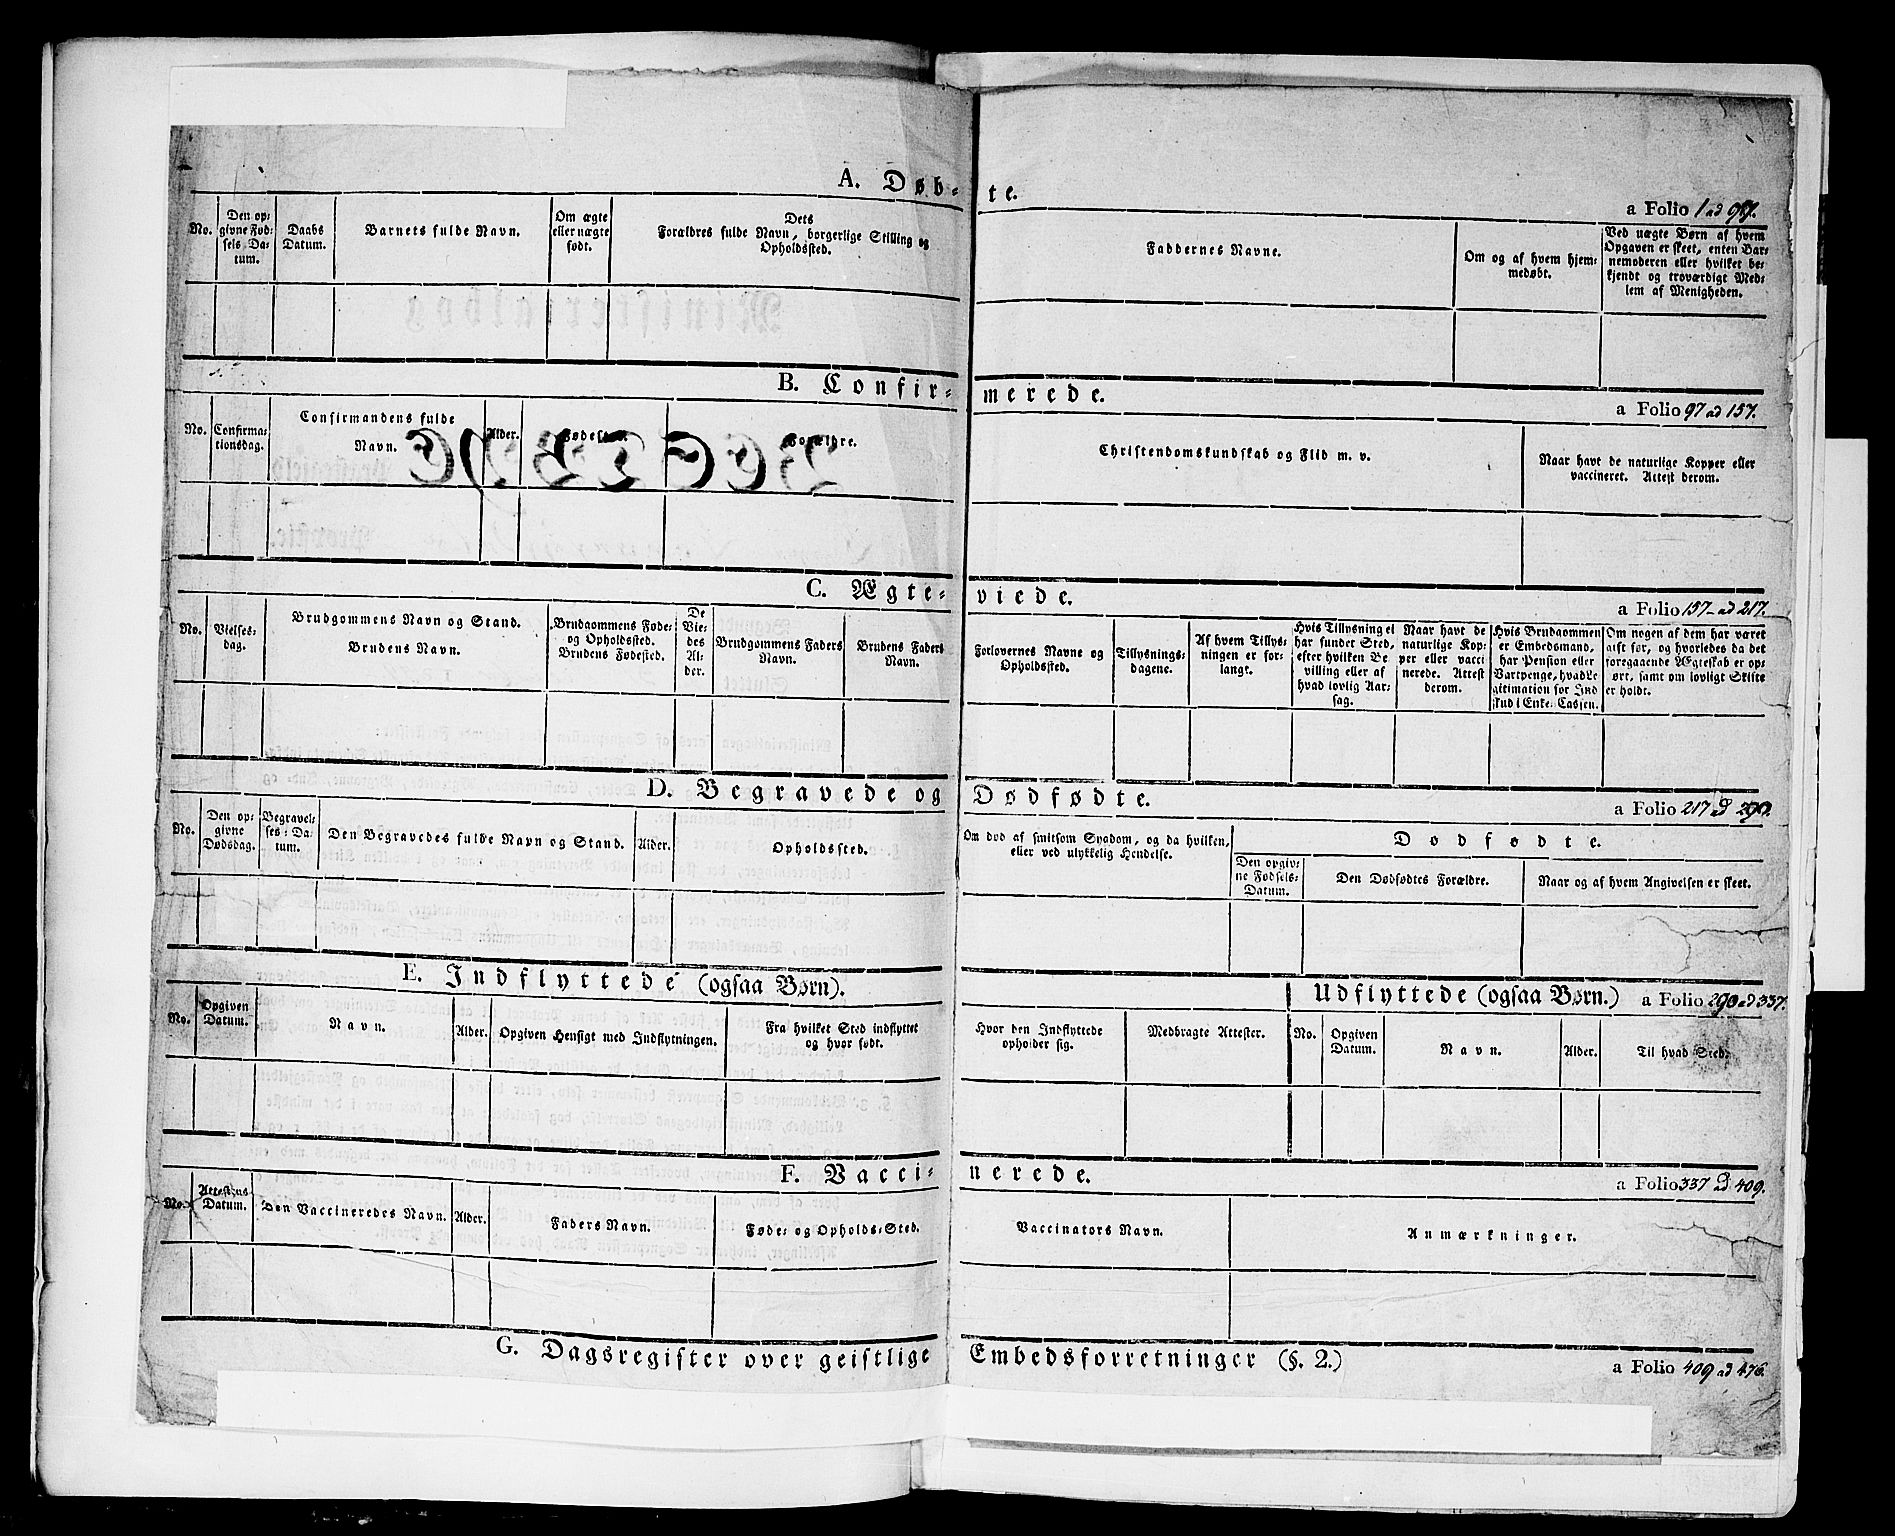 A. Døb- te.
a Folio 1 ad 97.
No.
Den op-
givne Fød-
sels Da-
tum.
Daabs
Datum.
Barnets fulde Navn.
Om ægte
eller uægte
født.
Dets
Forældres fulde Navn, borgerlige Stilling og
Opholdssted.
Faddernes Navne.
Om og af hvem hjem-
medøbt.
Ved uægte Børn af hvem
Opgaven er skeet, enten Bar-
nemoderen eller hvilket be-
kjendt og troværdigt Med-
lem af Menigheden.
B. Confir- merede.
a Folio 97 ad 157.
No.
Confirma-
tionsdag.
Confirmandens fulde
Navn.
Alder.
Fødested.
Forældre.
Christendomskundskab og Flid m. v.
Naar havt de naturlige Kopper eller
vaccineret. Attest derom.
C. Ægte- viede.
a Folio 157- ad 217.
No.
Vielses-
dag.
Brudgommens Navn og Stand.
Brudens Navn.
Brudgommens Føde-
og Opholdssted.
Brudens Fødested.
De
Vie-
des
Al-
der.
Brudgommens Faders
Navn.
Brudens Faders
Navn.
Forlovernes Navne og
Opholdssted.
Tillysnings-
dagene.
Af hvem Tillys-
ningen er for-
langt.
Hvis Tillysning ei
har funder Sted,
efter hvilken Be
villing eller af
hvad lovlig Aar-
sag.
Naar havt de
naturlige Kop-
per eller vacci
nerede. Attest
derom.
Hvis Brudgommen
er Embedsmand,
har Pension eller
Vartpenge, hvad Le
gitimation for Ind
skud i Enke-Cassen.
Om nogen af dem har været
gift før, og hvorledes da det
foregaaende Ægteskab er op-
ørt, samt om lovligt Skifte
er holdt.
D. Begravede og Dødfødte.
a Folio 217 ad 290.
No.
Den op-
givne
Dødsdag.
Begravel-
ses-Da-
tum.
Den Begravedes fulde Navn og Stand.
Alder.
Opholdssted.
Om død af smitsom Sygdom, og da hvilken,
eller ved ulykkelig Hendelse.
Dødfødte.
Den opgiv-
ne Fødsels-
Datum.
Den Dødfødtes Forældre.
Naar og af hvem Angivelsen er skeet.
E. Indflyttede (ogsaa Børn).
Udflyttede (ogsaa Børn.) a Folio 290 ad 337.
No.
Opgiven
Datum.
Navn.
Alder.
Opgiven Hensigt med Indflytningen.
Fra hvilket Sted indflyttet
og hvor født.
Hvor den Indflyttede
opholder sig.
Medbragte Attester.
No.
Opgiven
Datum.
Navn.
Alder.
Til hvad Sted.
F. Vacci- nerede.
a Folio 337 ad 409.
No.
Attestens
Datum.
Den Vaccineredes Navn.
Alder.
Faders Navn.
Føde- og Opholds-Sted.
Vaccinators Navn.
Anmærkninger.
G. Dagsregister over geistlige Embedsforretninger (§. 2.)
a Folio 409 ad 476.